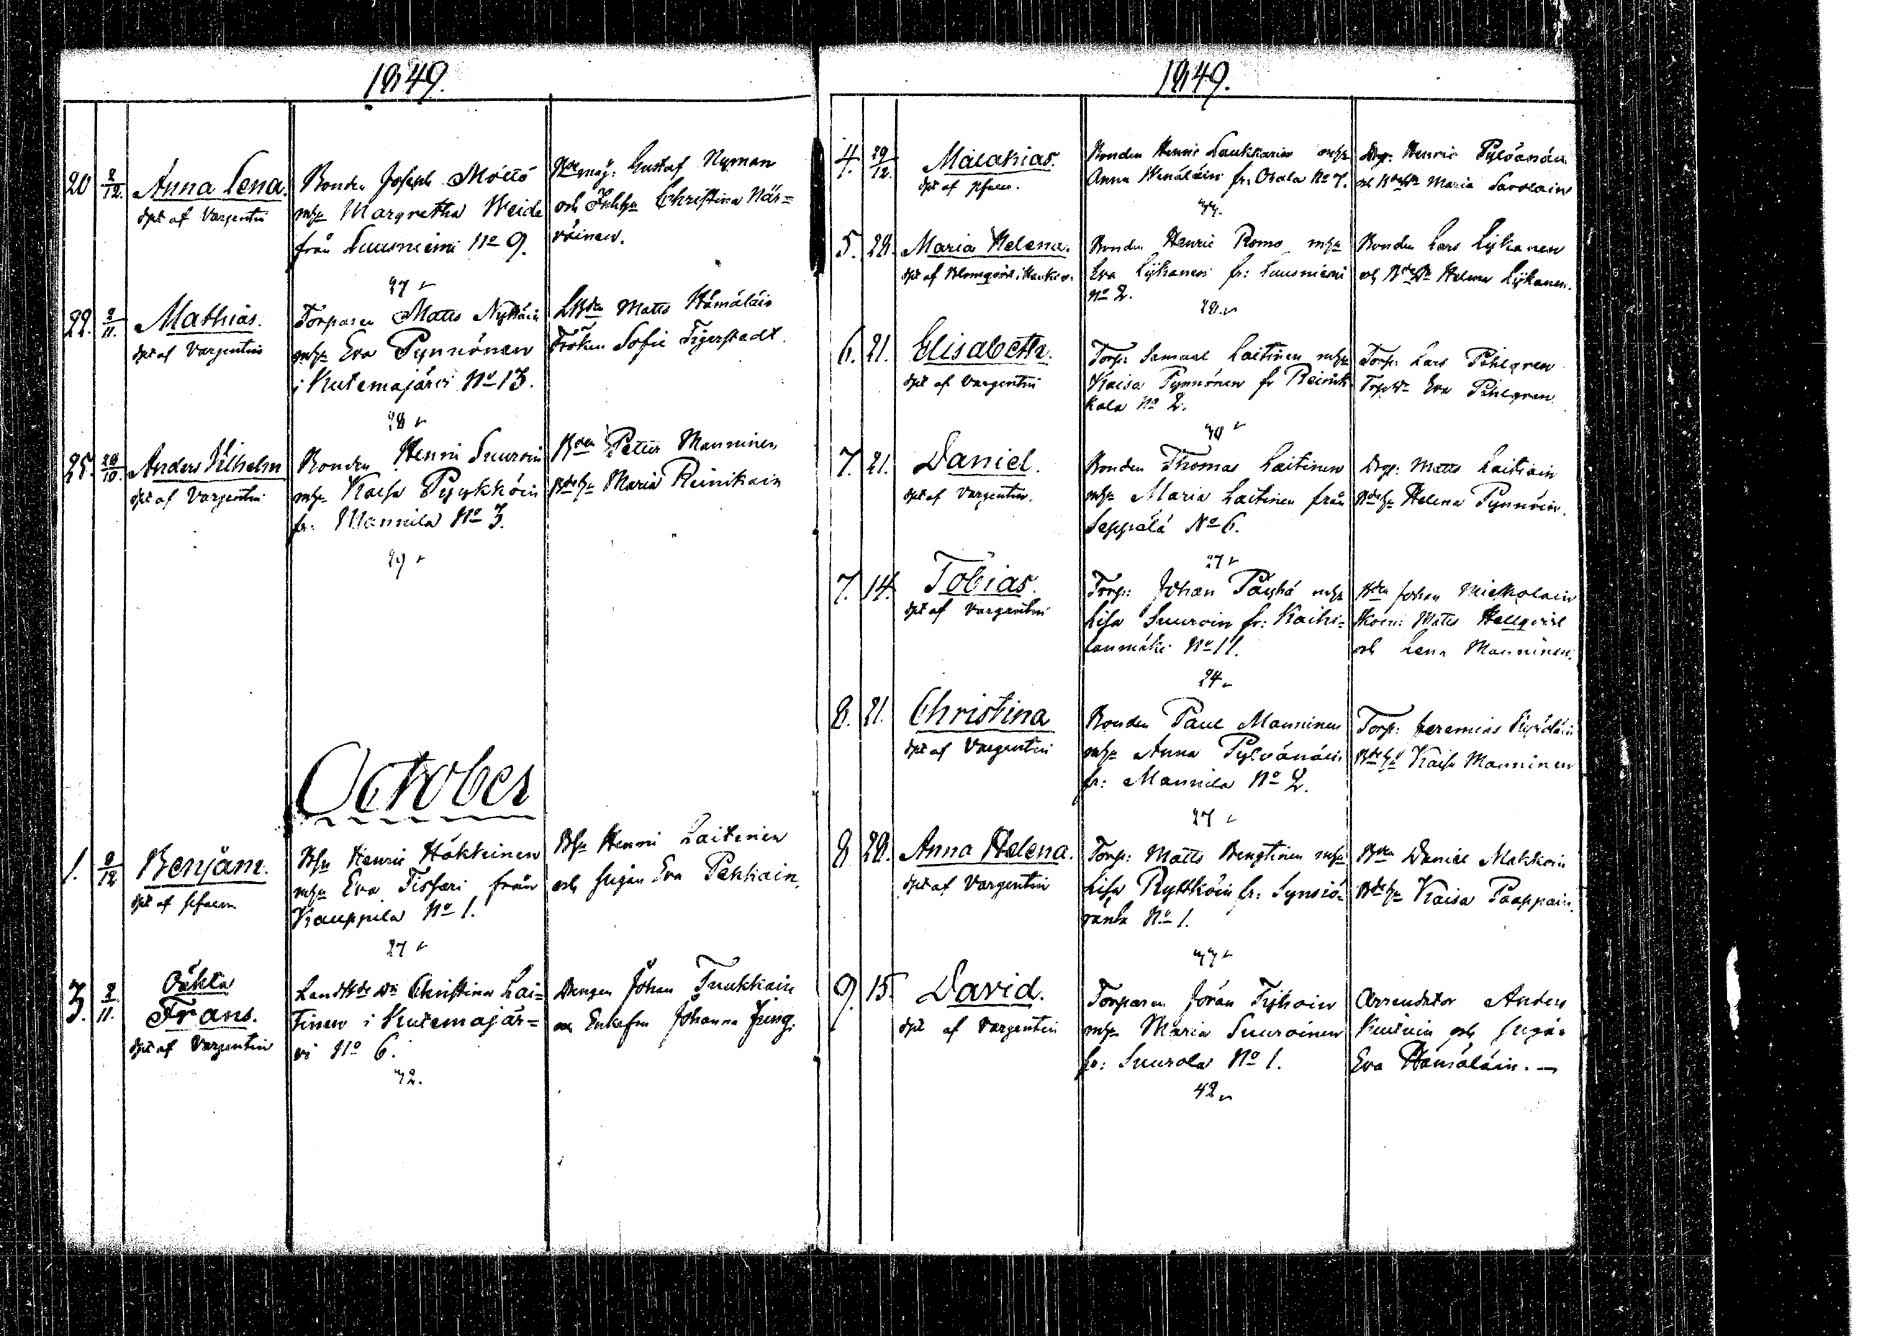 1849.
20 2/12. Anna Lena.
döpt af Vargentin
Bonden Joseph Möttö
mhu Margretha Weide
från Suurniemi No 9.
27
Gustaf Nyman
och Christina När=
väinen.
22. 2/11. Mathias.
döpt af Vargentin
Torparen Matts Nykäin
mhu Eva Pynnönen
i Kutemajärvi No 13.
28
Matts Hämäläin
Fröken Sofie Tigerstedt.
25. 28/10. Anders Vilhelm
döpt af Vargentin
Bonden Henric Suuroin
mhu Kaisa Pyykköin
fr: Mannila No 3.
29
Bden Petter Manninen
Bdehu Maria Reinikain
October
1. 9/12 Benjam.
döpt af
Henric Häkkinen
mhu Eva Tissari från
Kauppila No 1.
27
Henric Laitinen
och pigan Eva Pekkain.
3. 2/11. Oäkta
Frans.
döpt af Vargentin
Christina Lai=
tinen i Kutemajär=
vi No 6.
42.
Drengen Johan Tuukkain
och Enkefru Johanna Jung.
1849.
4. 29/12. Malakias.
döpt af
Bonden Henric Laukkarin mhu
Anna Hinäläin fr: Osala No 7.
44.
Drg: Henric Pylvänäin
och Maria Savolain
5. 28. Maria Helena.
döpt af Blomqvist i Hankas.
Bonden Henric Romo mhu
Eva Lyikanen fr: Suurniemi
No 2.
28.
Bonden Lars Lyikanen
och Helena Lyikanen.
6. 21. Elisabeth.
döpt af Vargentin
Torp: Samuel Laitinen mhu
Kaisa Pynnönen fr Reinik
kala No 2.
40
Torp: Lars Pihlgren
Eva Pihlgren
7. 21. Daniel.
döpt af Vargentin.
Bonden Thomas Laitinen
mhu Maria Laitinen från
Seppälä No 6.
27
Drg: Matts Laitiain
Bdehu Helena Pynnöin.
7. 14. Tobias.
döpt af Vargentin
Torp: Johan Päyhä mhu
Lisa Suuroin fr: Kaihi=
lanmäki No 11.
24
Bden Johan Niekkolain
Matts Hellqvist
och Lena Manninen.
8. 21. Christina
döpt af Vargentin
Bonden Paul Manninen
mhu Anna Pylvänäin
fr: Mannila No 2.
27
Torp: Jeremias
Bdehu Kaisa Manninen
8 28. Anna Helena.
döpt af Vargentin
Torp: Matts Bengtinen mhu
Lisa Ryttköin fr: Synsiö=
ranta No 1.
44
Bden Daniel Makkoin
Bdehu Kaisa Paappain.
9. 15. David.
döpt af Vargentin
Torparen Jöran Tyihoin
mhu Maria Suuroinen
fr: Suurola No 1.
42
Arrendator Anders
Kutvin och pigan
Eva Hämäläin. —